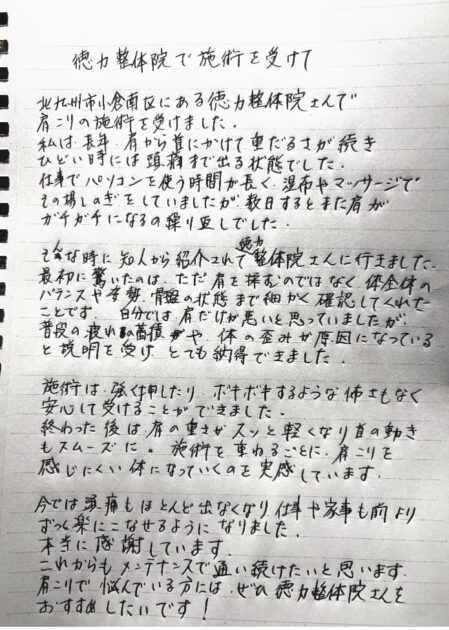 徳力整体院で施術を受けて
北九州市小倉南区にある徳力整体院さんで
肩こりの施術を受けました.
私は、長年、肩から首にかけて重だるさが続き
ひどい時には頭痛まで出る状態でした.
仕事でパソコンを使う時間が長く、湿布やマッサージで
その場しのぎをしていましたが、数日するとまた肩が
ガチガチになるの繰り返しでした.
そんな時に知人から紹介されて徳力整体院さんに行きました.
最初に驚いたのは、ただ肩を揉むのではなく体全体の
バランスや姿勢、骨盤の状態まで細かく確認してくれた
ことです. 自分では、肩だけが悪いと思っていましたが、
普段の疲れの蓄積や、体の歪みが原因になっている
と説明を受け、とても納得できました.
施術は、強く押したり、ボキボキするような怖さもなく
安心して受けることができました.
終わった後は、肩の重さがスッと軽くなり首の動き
もスムーズに。施術を重ねるごとに、肩こりを
感じにくい体になっていくのを実感しています.
今では頭痛もほとんど出なくなり仕事や家事も前より
ずっと楽にこなせるようになりました.
本当に感謝しています.
これからもメンテナンスで通い続けたいと思います.
肩こりで悩んでいる方には、ぜひ徳力整体院さんを
おすすめしたいです!